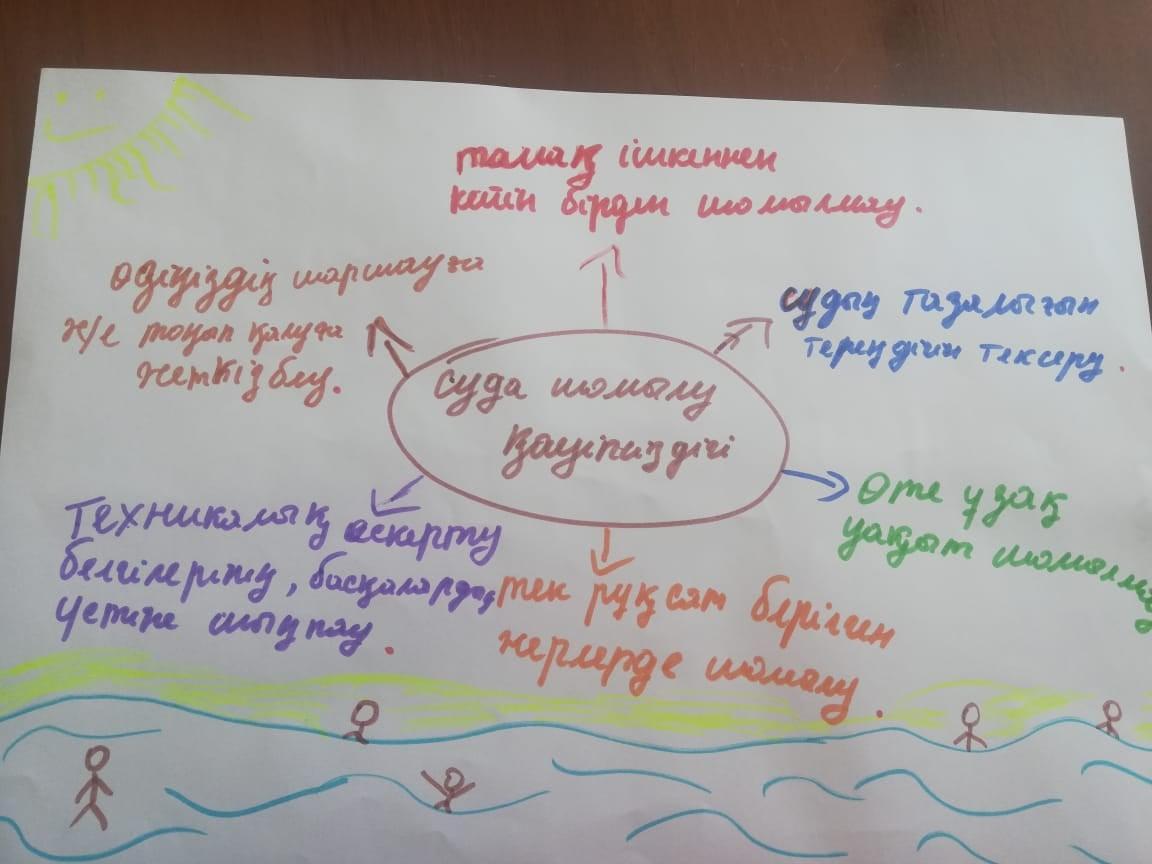 тамақ ішкеннен
кейін бірден шомылмау.
Өзіңіздің шаршауға
ж/е тоңап қалуға
жеткізбеу.
судың тазалығын
тереңдігін тексеру.
суда шомылу
қауіпсіздігі
Өте ұзақ
уақыт шомылмау
Техникалық ескерту
белгілерінің, басқалардың
үстіне шықпау.
тек рұқсат берілген
жерлерде шомылу.